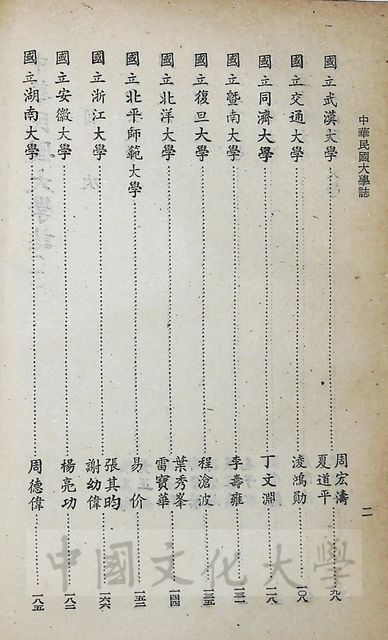 中華民國大學誌
二
國立武漢大學……周宏濤 夏道平……九八
國立交通大學……淩鴻勛……一〇八
國立同濟大學……丁文淵……一一八
國立暨南大學……李壽雍……一三一
國立復旦大學……程滄波……一三五
國立北洋大學……葉秀峯 雷寶華……一四四
國立北平師範大學……易价……一五二
國立浙江大學……張其昀 謝幼偉……一六六
國立安徽大學……楊亮功……一八二
國立湖南大學……周德偉……一八五
中國文化大學